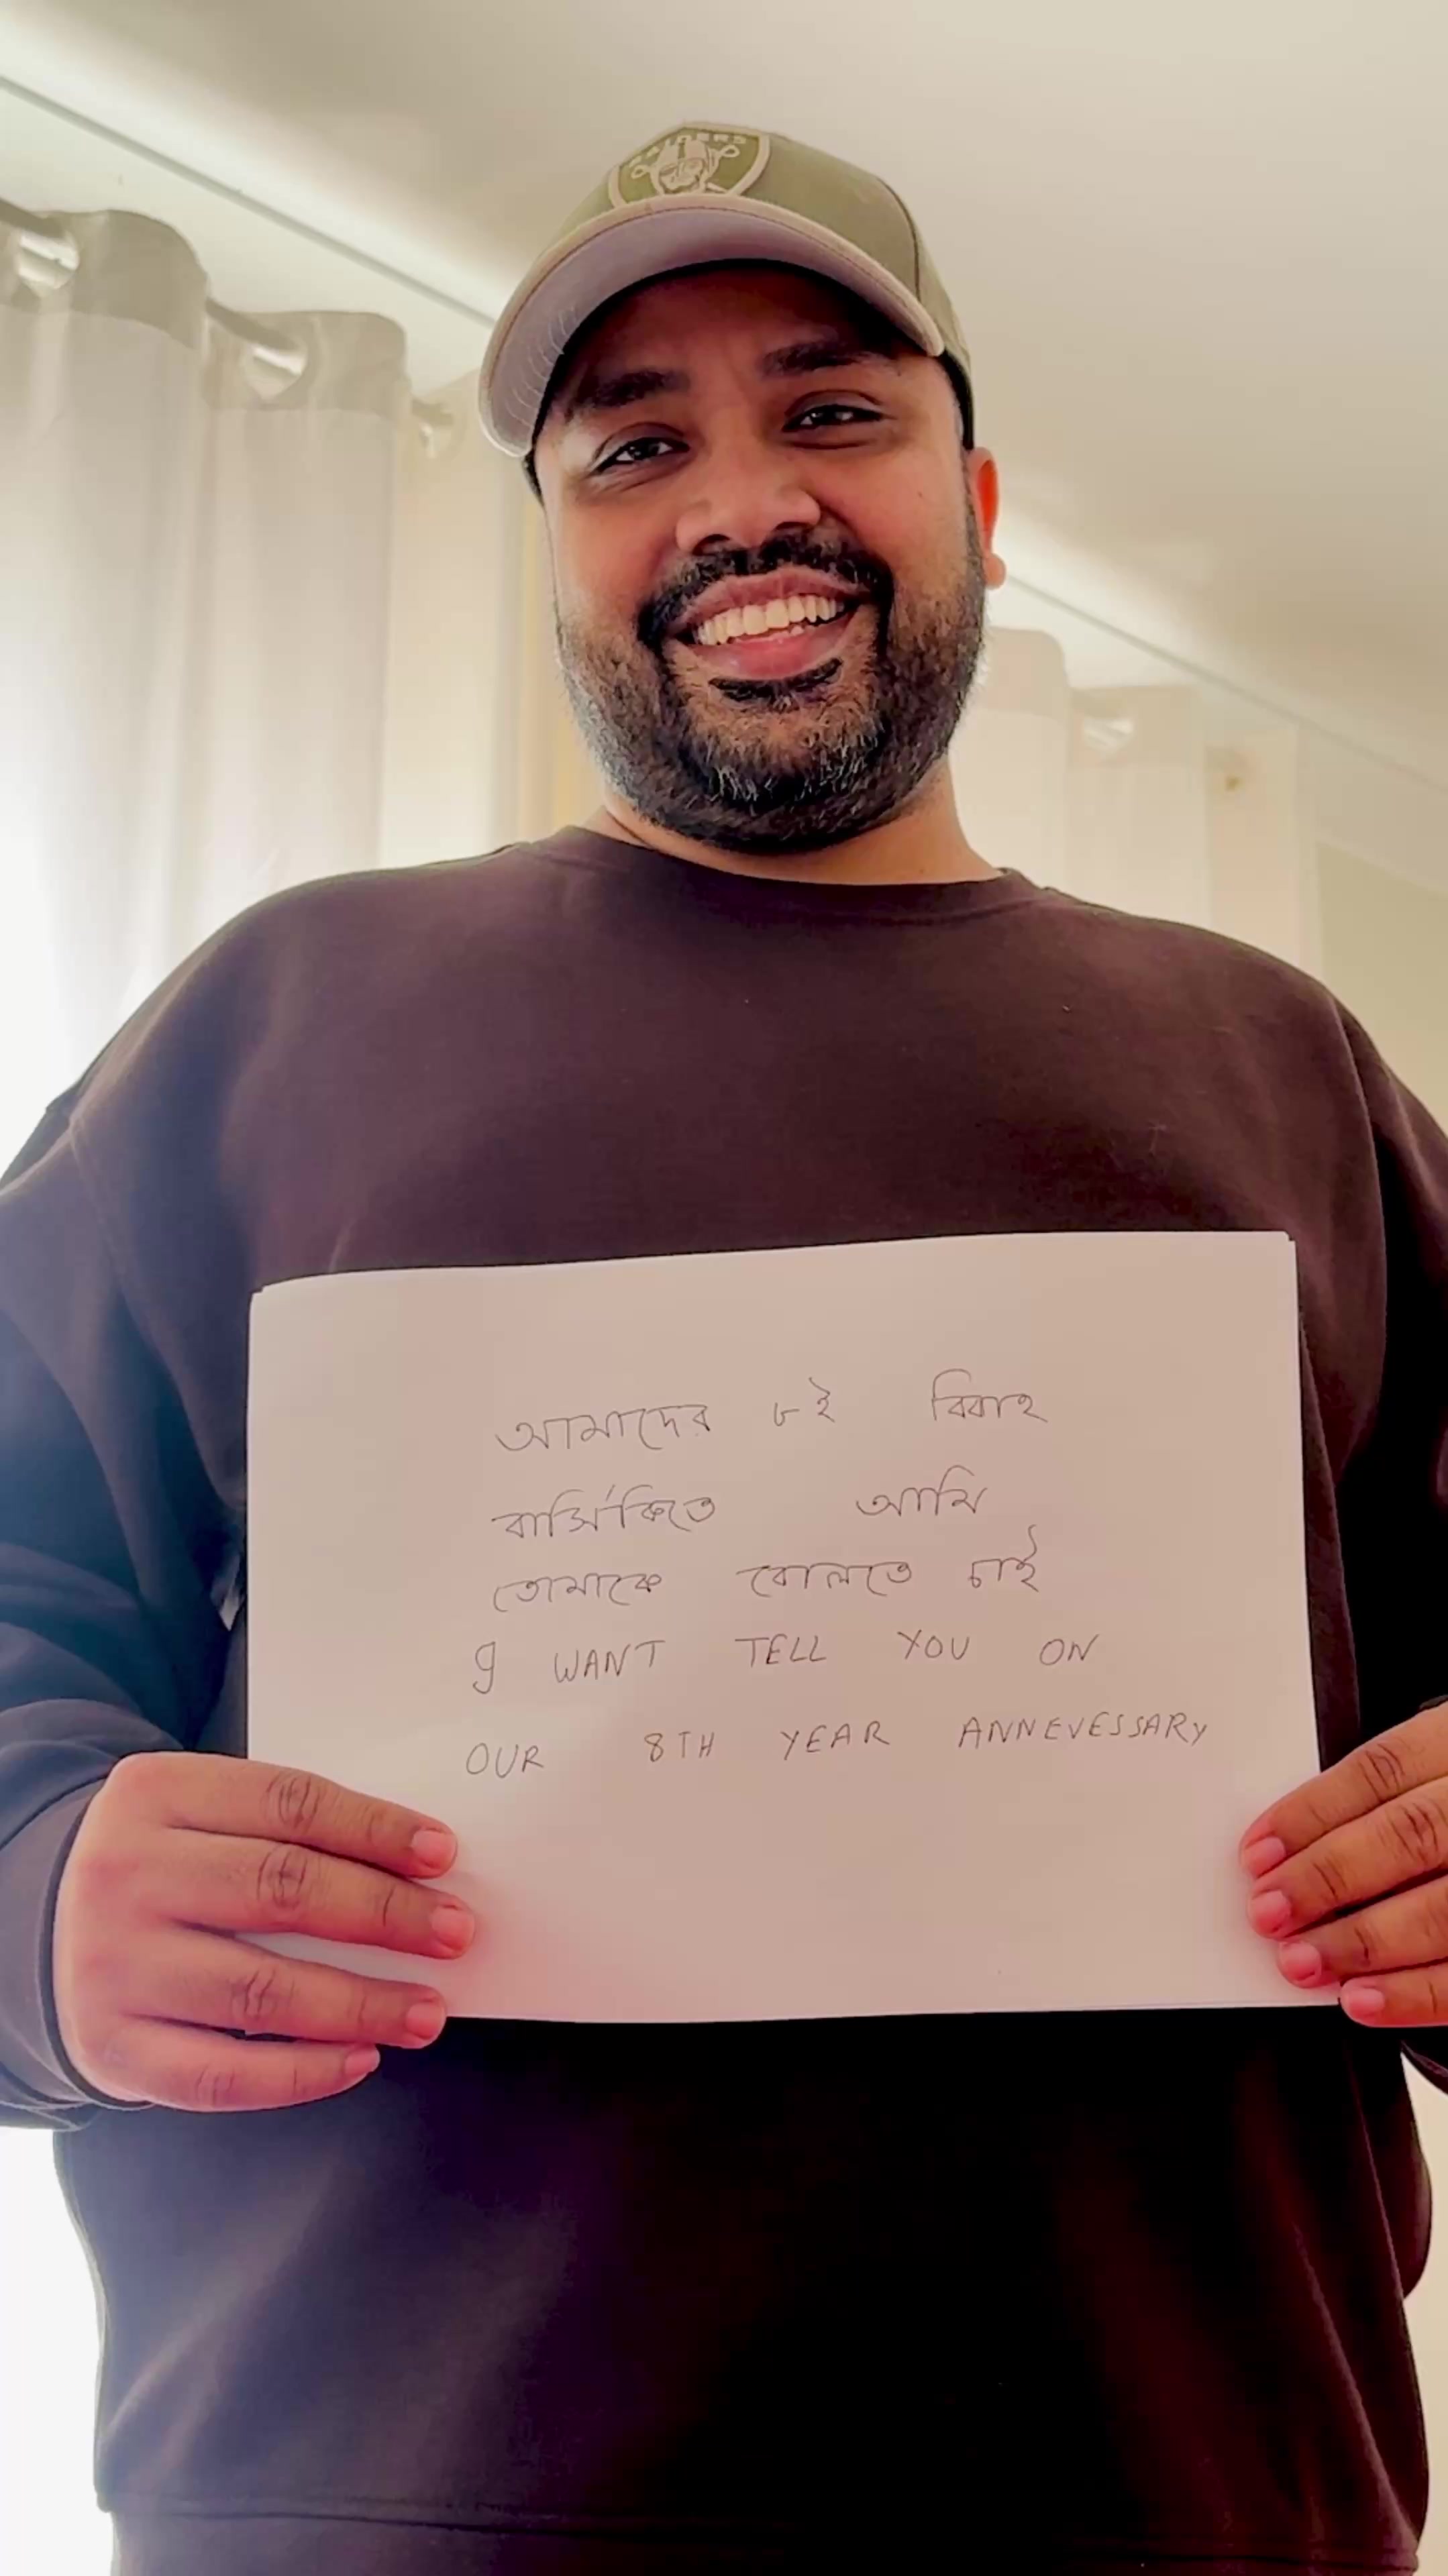 RAIDERS
আমাদের ৮ই বিবাহ
বার্সিকিতে আমি
তোমাকে বোলতে চাই
I WANT TELL YOU ON
OUR 8TH YEAR ANNEVESSARY